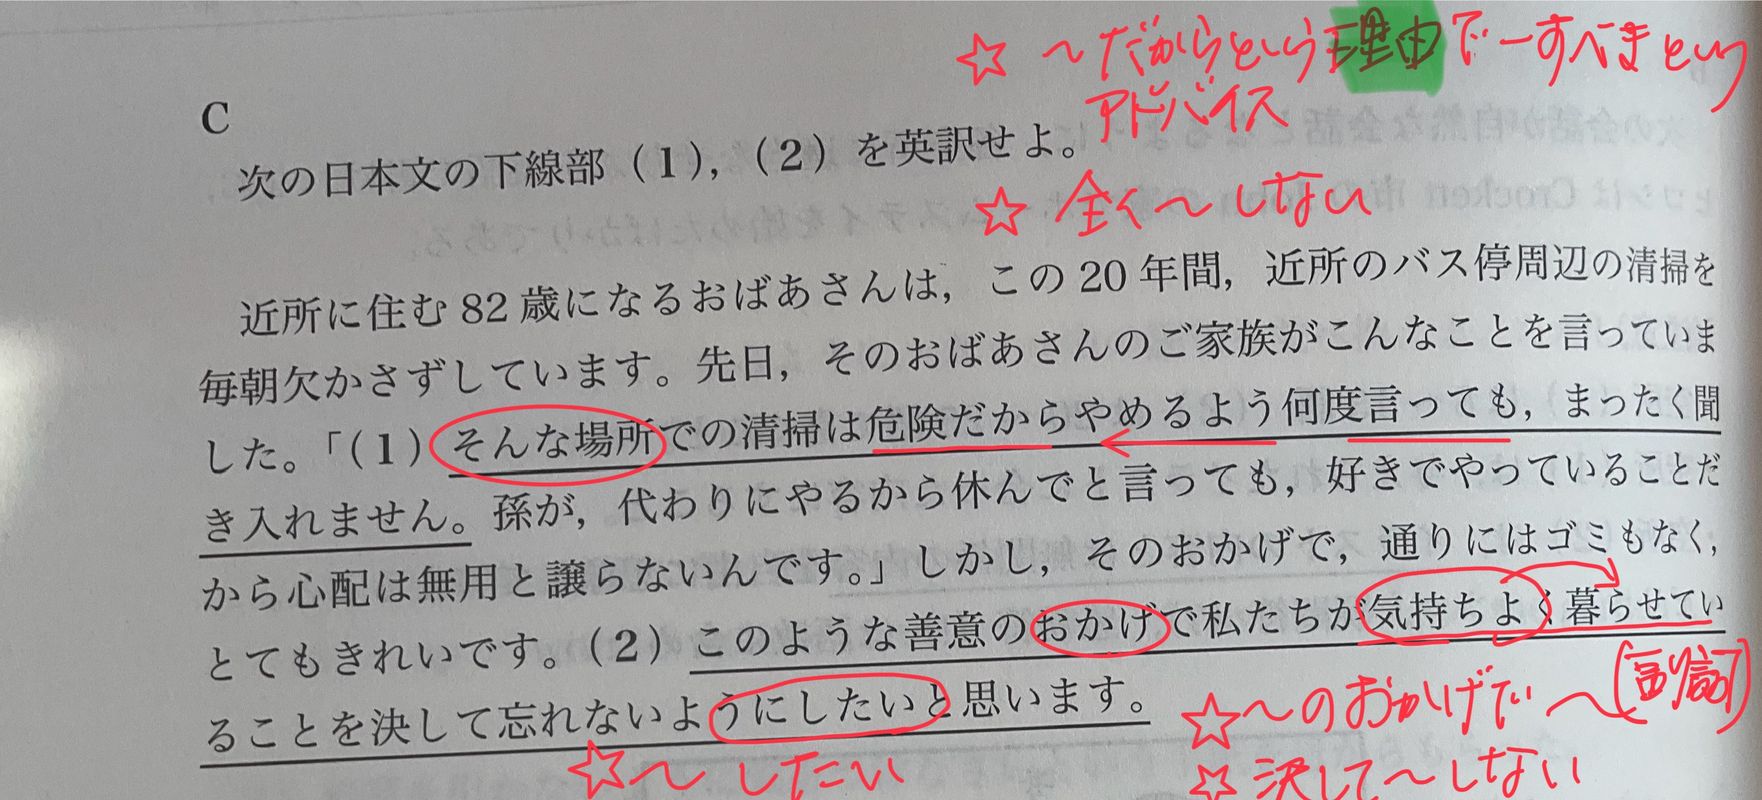 ☆ 〜だからという理由で一すべきという
アドバイス
C
次の日本文の下線部（1），（2）を英訳せよ。
☆ 全く〜しない
近所に住む82歳になるおばあさんは，この20年間，近所のバス停周辺の清掃を
毎朝欠かさずしています。先日，そのおばあさんのご家族がこんなことを言っていま
した。「（1）そんな場所での清掃は危険だからやめるよう何度言っても，まったく聞
き入れません。孫が，代わりにやるから休んでと言っても，好きでやっていることだ
から心配は無用と譲らないんです。」しかし，そのおかげで，通りにはゴミもなく，
とてもきれいです。（2）このような善意のおかげで私たちが気持ちよく暮らせてい
ることを決して忘れないようにしたいと思います。
☆〜のおかげで 〜（副詞）
☆〜したい
☆ 決して〜しない